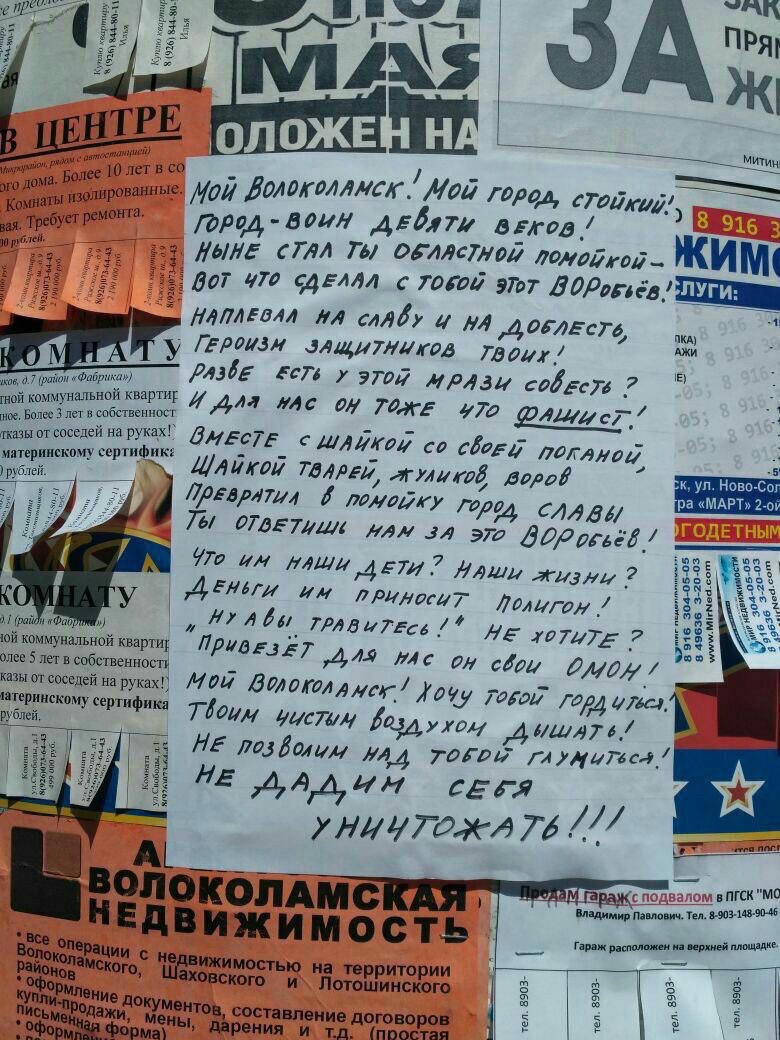 Куплю квартиру
8 (926) 844-80-11
Илья
МАЯ
ОЛОЖЕН НА
ЗА
МИТИН
В ЦЕНТРЕ
Микрорайон, рядом с автостанцией)
ого дома. Более 10 лет в со
Комнаты изолированные.
вая. Требует ремонта.
00 рублей.
8(926)073-64-43
КОМНАТУ
ков, д.7 (район «Фабрика»)
тной коммунальной квартир
ное. Более 3 лет в собственност
отказы от соседей на руках!)
материнскому сертифика
0 рублей.
КОМНАТУ
д.1 (район «Фабрика»)
ной коммунальной квартир
олее 5 лет в собственности
казы от соседей на руках!)
материнскому сертифика
рублей.
Комната
ул.Свободы, д.1
8(926)073-64-43
499 000 руб.
Мой Волоколамск! Мой город стойкий!
Город-воин девяти веков!
Ныне стал ты областной помойкой –
Вот что сделал с тобой этот ВОРобьёв!
Наплевал на славу и на доблесть,
Героизм защитников твоих!
Разве есть у этой мрази совесть?
И для нас он тоже что фашист!
Вместе с шайкой со своей поганой,
Шайкой тварей, жуликов, воров
Превратил в помойку город славы
Ты ответишь нам за это ВОРобьёв!
Что им наши дети? Наши жизни?
Деньги им приносит полигон!
„Ну а вы травитесь!" Не хотите?
Привезёт для нас он свой ОМОН!
Мой Волоколамск! Хочу тобой гордиться!
Твоим чистым воздухом дышать!
Не позволим над тобой глумиться!
Не дадим себя
уничтожать!!!
8 916 3
ЖИМО
СЛУГИ:
ск, ул. Ново-Сол
тра «МАРТ» 2-ой
ОГОДЕТНЫМ
8 916 304-05-05
8 49636 3-20-03
www.MirNed.com
МИР НЕДВИЖИМОСТИ
ВОЛОКОЛАМСКАЯ
НЕДВИЖИМОСТЬ
• все операции с недвижимостью на территории
Волоколамского, Шаховского и Лотошинского
районов
• оформление документов, составление договоров
купли-продажи, мены, дарения и т.д. (простая
письменная форма)
Продам гараж с подвалом в ПГСК "МО
Владимир Павлович. Тел. 8-903-148-90-46
Гараж расположен на верхней площадке.
тел. 8903-
тел. 8903-
тел. 8903-
тел. 8903-